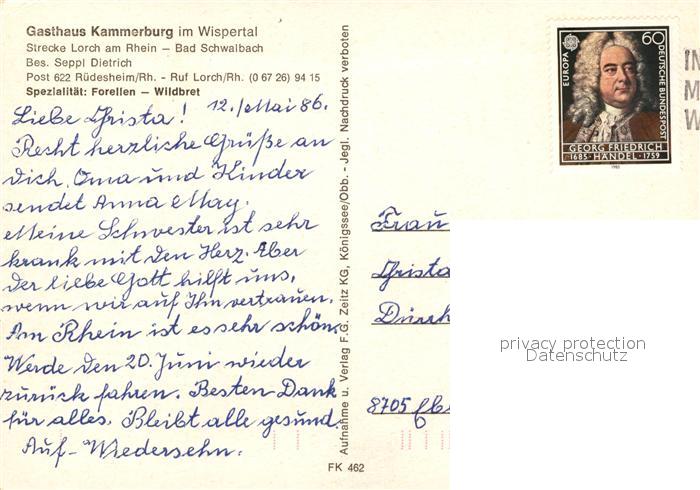 Gasthaus Kammerburg im Wispertal
Strecke Lorch am Rhein – Bad Schwalbach
Bes. Seppl Dietrich
Post 622 Rüdesheim/Rh. - Ruf Lorch/Rh. (0 67 26) 94 15
Spezialität: Forellen – Wildbret
12. Mai 86.
Liebe Christa!
Recht herzliche Grüße an
Dich, Oma und Kinder
sendet Anna May.
Meine Schwester ist sehr
krank mit den Herz. Aber
der liebe Gott hilft uns,
wenn wir auf Ihn vertrauen.
Am Rhein ist es sehr schön.
Werde den 20. Juni wieder
zurück fahren. Besten Dank
für alles. Bleibt alle gesund.
Auf-Wiedersehn.
Aufnahme u. Verlag F.G. Zeitz KG, Königssee/Obb. - Jegl. Nachdruck verboten
FK 462
EUROPA
60
DEUTSCHE BUNDESPOST
GEORG FRIEDRICH
1685 · HÄNDEL · 1759
1985
IN
M
W
Frau
Christa
Dürrh
8705
privacy protection
Datenschutz